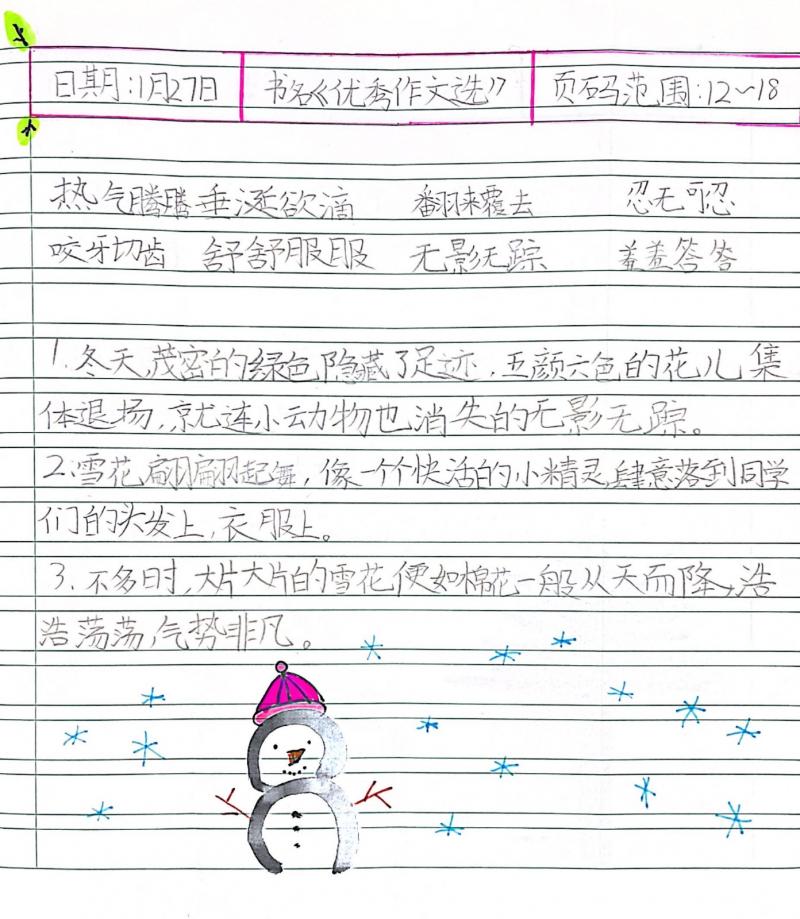 日期:1月27日 书名《优秀作文选》 页码范围:12~18
热气腾腾 垂涎欲滴 翻来覆去 忍无可忍
咬牙切齿 舒舒服服 无影无踪 羞羞答答
1.冬天,茂密的绿色隐藏了足迹,五颜六色的花儿集
体退场,就连小动物也消失的无影无踪。
2.雪花翩翩起舞,像一个个快活的小精灵,肆意落到同学
们的头发上,衣服上。
3.不多时,大片大片的雪花便如棉花一般从天而降,浩
浩荡荡,气势非凡。